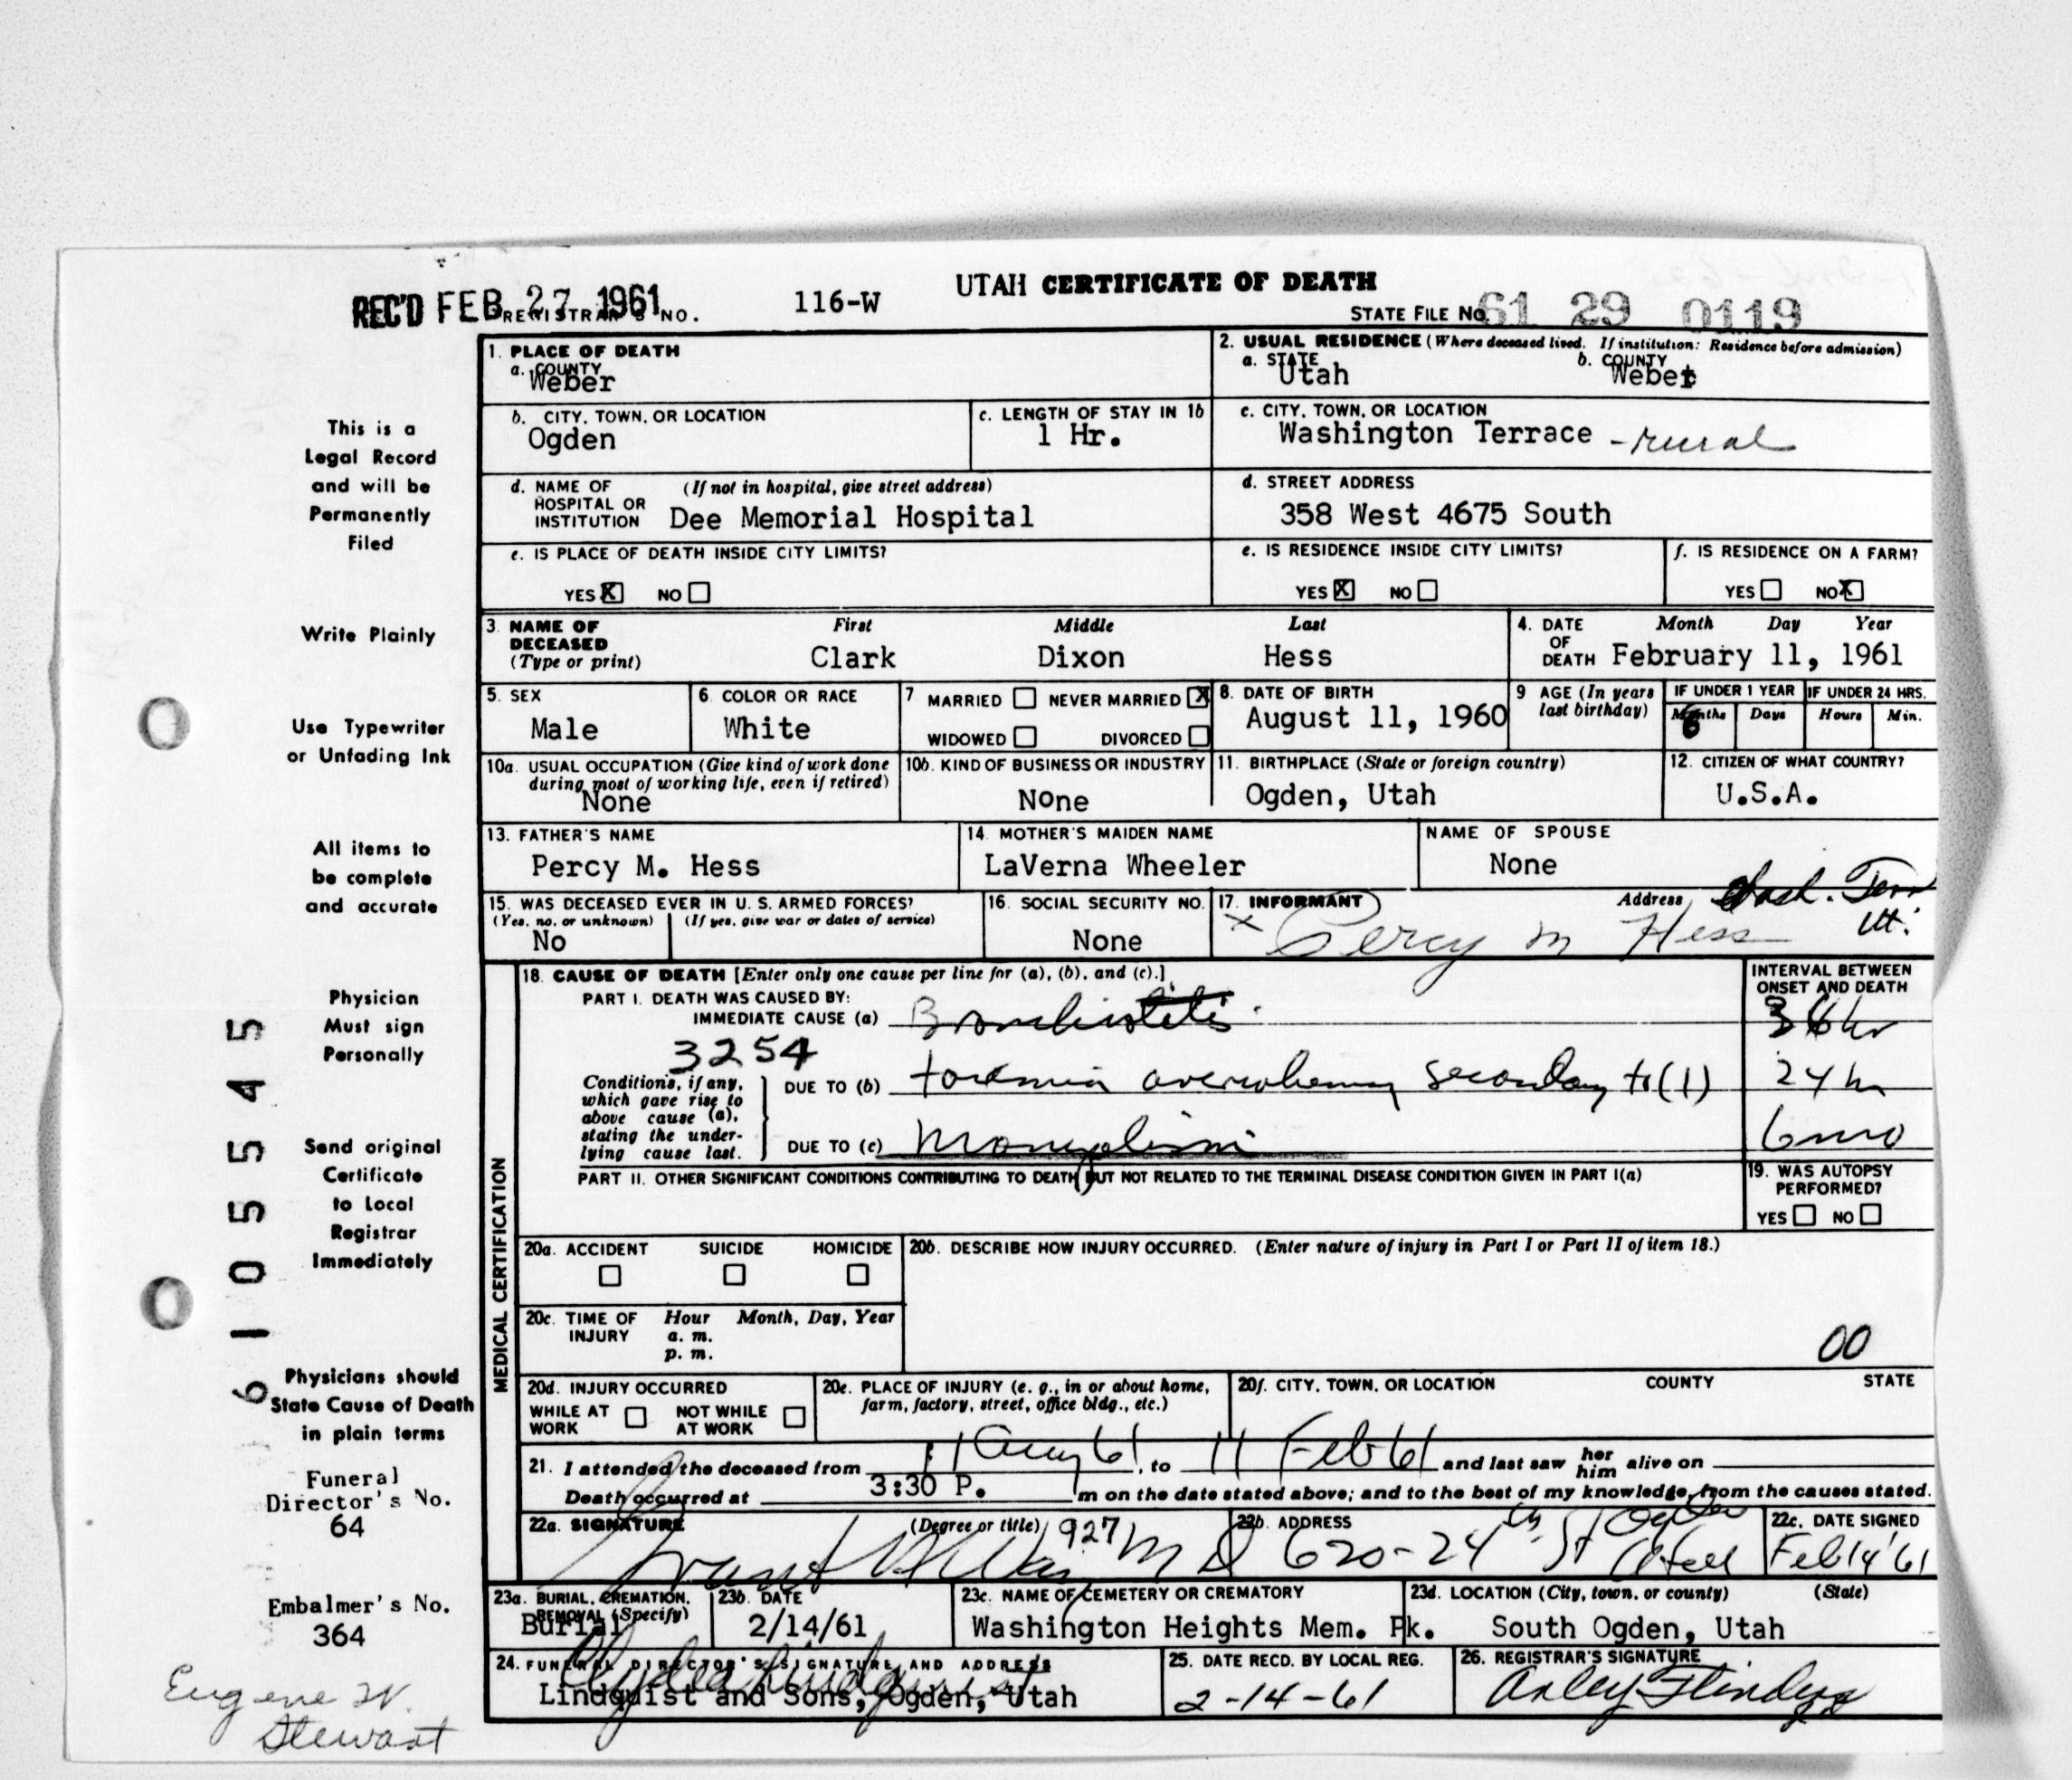 UTAH CERTIFICATE OF DEATH
REC'D FEB 27 1961 REGISTRAR'S NO. 116-W
STATE FILE NO. 61 29 0119
This is a
Legal Record
and will be
Permanently
Filed
Write Plainly
Use Typewriter
or Unfading Ink
All items to
be complete
and accurate
Physician
Must sign
Personally
Send original
Certificate
to Local
Registrar
Immediately
Physicians should
State Cause of Death
in plain terms
Funeral
Director's No.
64
Embalmer's No.
364
Eugene W.
Stewart
6105545
1. PLACE OF DEATH
a. COUNTY
Weber
2. USUAL RESIDENCE (Where deceased lived. If institution: Residence before admission)
a. STATE b. COUNTY
Utah Weber
b. CITY, TOWN, OR LOCATION
Ogden
c. LENGTH OF STAY IN 1b
1 Hr.
c. CITY, TOWN, OR LOCATION
Washington Terrace - rural
d. NAME OF HOSPITAL OR INSTITUTION (If not in hospital, give street address)
Dee Memorial Hospital
d. STREET ADDRESS
358 West 4675 South
e. IS PLACE OF DEATH INSIDE CITY LIMITS?
YES X NO
e. IS RESIDENCE INSIDE CITY LIMITS?
YES X NO
f. IS RESIDENCE ON A FARM?
YES NO X
3. NAME OF DECEASED (Type or print)
First Middle Last
Clark Dixon Hess
4. DATE OF DEATH
Month Day Year
February 11, 1961
5. SEX
Male
6. COLOR OR RACE
White
7 MARRIED NEVER MARRIED X
WIDOWED DIVORCED
8. DATE OF BIRTH
August 11, 1960
9 AGE (In years last birthday)
IF UNDER 1 YEAR IF UNDER 24 HRS.
Months Days Hours Min.
6
10a. USUAL OCCUPATION (Give kind of work done during most of working life, even if retired)
None
10b. KIND OF BUSINESS OR INDUSTRY
None
11. BIRTHPLACE (State or foreign country)
Ogden, Utah
12. CITIZEN OF WHAT COUNTRY?
U.S.A.
13. FATHER'S NAME
Percy M. Hess
14. MOTHER'S MAIDEN NAME
LaVerna Wheeler
NAME OF SPOUSE
None
15. WAS DECEASED EVER IN U. S. ARMED FORCES?
(Yes, no, or unknown) (If yes, give war or dates of service)
No
16. SOCIAL SECURITY NO.
None
17. INFORMANT Address
x Percy M Hess Wash. Terr Ut.
MEDICAL CERTIFICATION
18. CAUSE OF DEATH [Enter only one cause per line for (a), (b), and (c).]
INTERVAL BETWEEN ONSET AND DEATH
PART I. DEATH WAS CAUSED BY:
IMMEDIATE CAUSE (a)
36 hr
3254
Conditions, if any, which gave rise to above cause (a), stating the underlying cause last.
DUE TO (b) toxemia overwhelming secondary to (1) 24 hr
DUE TO (c) Mongolism 6 mo
PART II. OTHER SIGNIFICANT CONDITIONS CONTRIBUTING TO DEATH BUT NOT RELATED TO THE TERMINAL DISEASE CONDITION GIVEN IN PART I(a)
19. WAS AUTOPSY PERFORMED?
YES NO
20a. ACCIDENT SUICIDE HOMICIDE
20b. DESCRIBE HOW INJURY OCCURRED. (Enter nature of injury in Part I or Part II of item 18.)
20c. TIME OF INJURY Hour Month, Day, Year
a. m.
p. m.
00
20d. INJURY OCCURRED
WHILE AT WORK NOT WHILE AT WORK
20e. PLACE OF INJURY (e. g., in or about home, farm, factory, street, office bldg., etc.)
20f. CITY, TOWN, OR LOCATION COUNTY STATE
21. I attended the deceased from , to 11 Feb 61 and last saw her him alive on
Death occurred at 3:30 P. m on the date stated above; and to the best of my knowledge, from the causes stated.
22a. SIGNATURE (Degree or title)
Grant 927 M D
22b. ADDRESS
620-24th St Ogden Utah
22c. DATE SIGNED
Feb 14 '61
23a. BURIAL, CREMATION, REMOVAL (Specify)
Burial
23b. DATE
2/14/61
23c. NAME OF CEMETERY OR CREMATORY
Washington Heights Mem. Pk.
23d. LOCATION (City, town, or county) (State)
South Ogden, Utah
24. FUNERAL DIRECTOR'S SIGNATURE AND ADDRESS
Lindquist and Sons, Ogden, Utah
25. DATE RECD. BY LOCAL REG.
2-14-61
26. REGISTRAR'S SIGNATURE
Arley Flinders